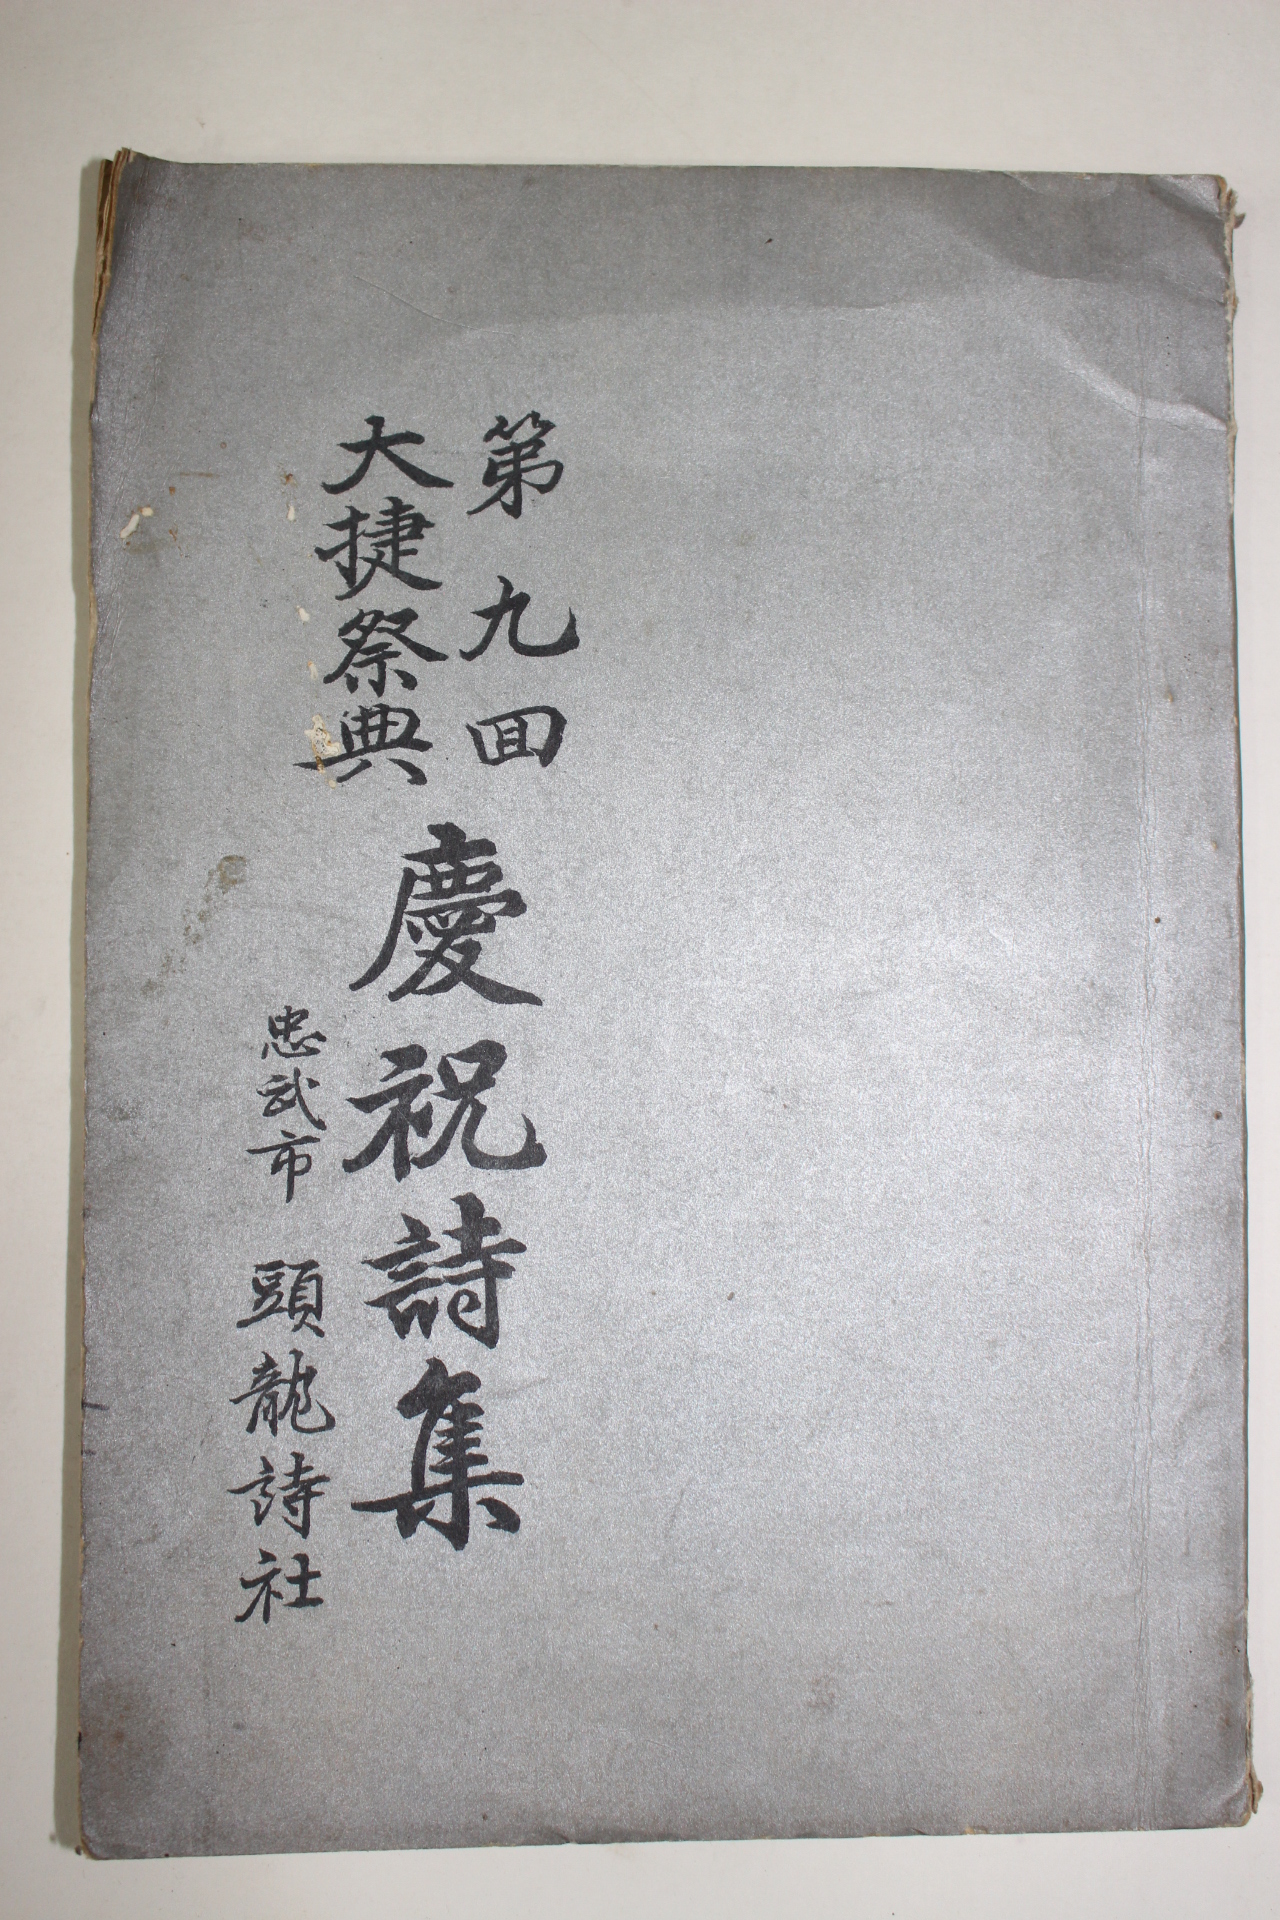 第九回
大捷祭典
慶祝詩集
忠武市 頭龍詩社